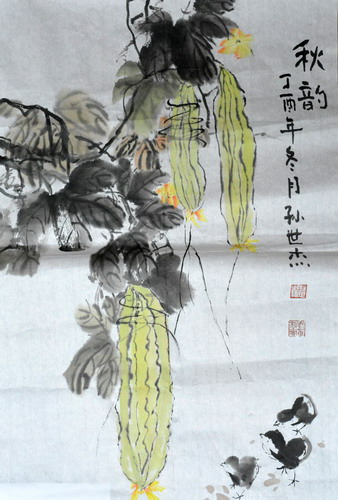 秋韵
丁酉年冬月孙世杰